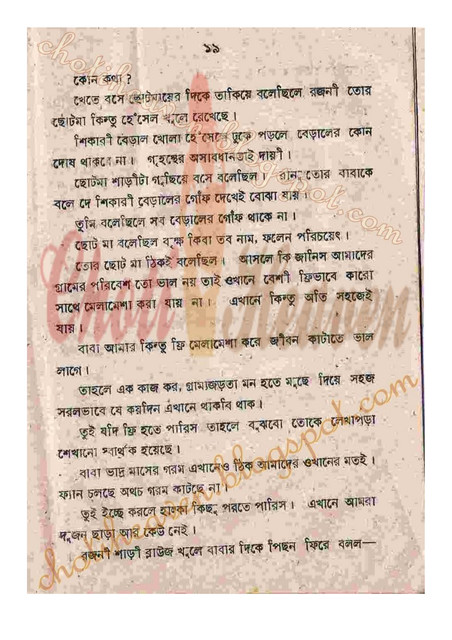 ১১
কোন কথা ?
খেতে বসে ছোটমায়ের দিকে তাকিয়ে বলেছিলে রজনী তোর
ছোটমা কিন্তু হেঁসেল খুলে রেখেছে।
শিকারী বেড়াল খোলা হেঁসেলে ঢুকে পড়লে বেড়ালের কোন
দোষ থাকবে না। গৃহস্থের অসাবধানতাই দায়ী।
ছোটমা শাড়ীটা গুছিয়ে বসে বলেছিল। তোর বাবাকে
বলে দে শিকারী বেড়ালের গোঁফ দেখেই বোঝা যায়।
তুমি বলেছিলে সব বেড়ালের গোঁফ থাকে না।
ছোট মা বলেছিল বৃক্ষ কিবা তব নাম, ফলেন পরিচয়েৎ।
তোর ছোট মা ঠিকই বলেছিল। আসলে কি জানিস আমাদের
গ্রামের পরিবেশ তো ভাল নয় তাই ওখানে বেশী ফ্রিভাবে কারো
সাথে মেলামেশা করা যায় না। এখানে কিন্তু অতি সহজেই
যায়।
বাবা আমার কিন্তু ফ্রি মেলামেশা করে জীবন কাটাতে ভাল
লাগে।
তাহলে এক কাজ কর, গ্রাম্যজড়তা মন হতে মুছে দিয়ে সহজ
সরলভাবে যে কয়দিন এখানে থাকবি থাক।
তুই যদি ফ্রি হতে পারিস তাহলে বুঝবো তোকে লেখাপড়া
শেখানো স্বার্থক হয়েছে।
বাবা ভাদ্র মাসের গরম এখানেও ঠিক আমাদের ওখানের মতই।
ফ্যান চলছে অথচ গরম কাটছে না।
তুই ইচ্ছে করলে হাল্কা কিছু পরতে পারিস। এখানে আমরা
দুজন ছাড়া আর কেউ নেই।
রজনী শাড়ী ব্লাউজ খুলে বাবার দিকে পিছন ফিরে বলল—
Choti Heaven
chotiheaven.blogspot.com